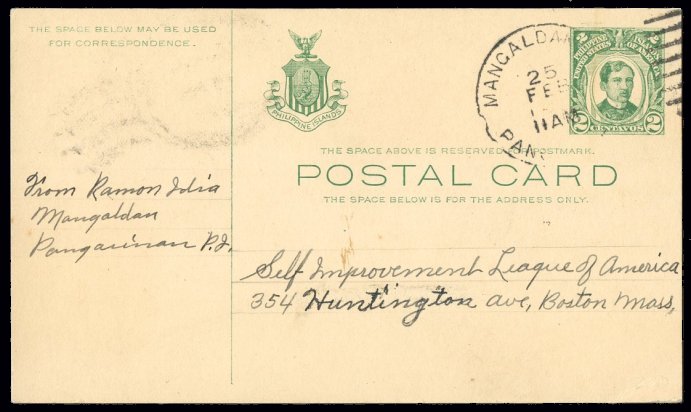 THE SPACE BELOW MAY BE USED
FOR CORRESPONDENCE.
PHILIPPINE ISLANDS
MANGALDAN
25
FEB
11AM
PAN
2 2
CENTAVOS
THE SPACE ABOVE IS RESERVED FOR POSTMARK.
POSTAL CARD
THE SPACE BELOW IS FOR THE ADDRESS ONLY.
From Ramon Idia
Mangaldan
Pangasinan P.I.
Self Improvement League of America
354 Huntington ave, Boston Mass,